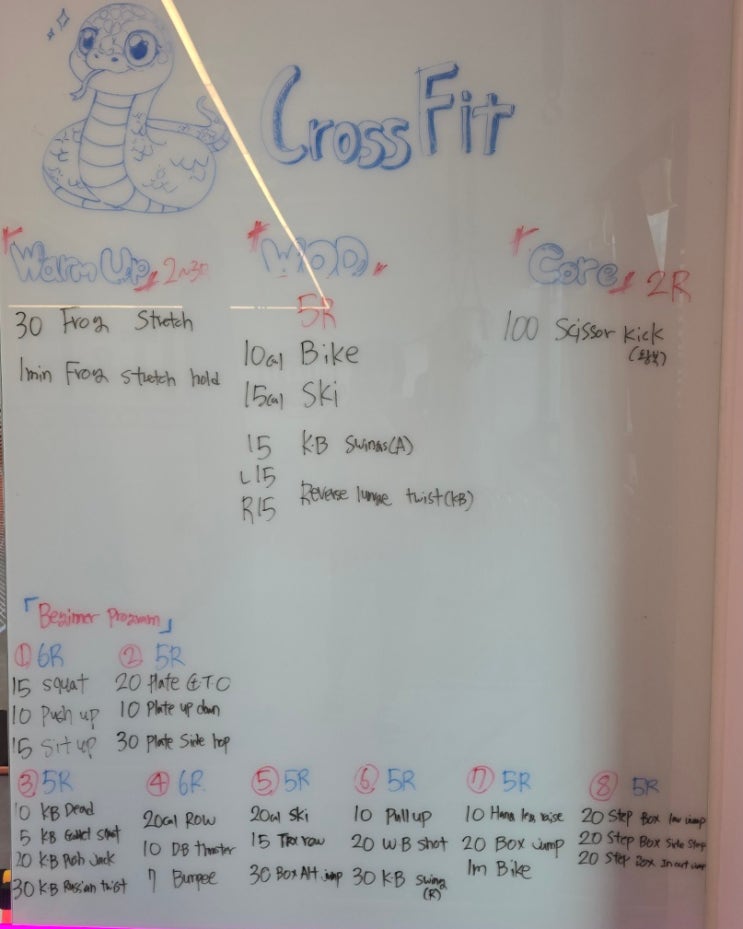 CrossFit
「Warm Up」 2~3R
30 Frog Stretch
1min Frog stretch hold
「WOD」
5R
10cal Bike
15cal Ski
15 K.B Swings(A)
L15
R15 Reverse lunge twist(KB)
「Core」 2R
100 Scissor kick
(왕복)
「Beginner Program」
① 6R
15 squat
10 Push up
15 Sit up
② 5R
20 Plate G.T.O
10 Plate up down
30 Plate Side hop
③ 5R
10 KB Dead
5 KB Goblet squat
20 KB Push Jack
30 KB Russian twist
④ 6R
20cal Row
10 DB Thruster
7 Burpee
⑤ 5R
20cal Ski
15 Trx row
30 Box Alt jump
⑥ 5R
10 Pull up
20 W.B Shot
30 K.B Swing
(R)
⑦ 5R
10 Hang leg raise
20 Box Jump
1m Bike
⑧ 5R
20 Step Box low jump
20 Step Box Side Step
20 Step Box In out jump